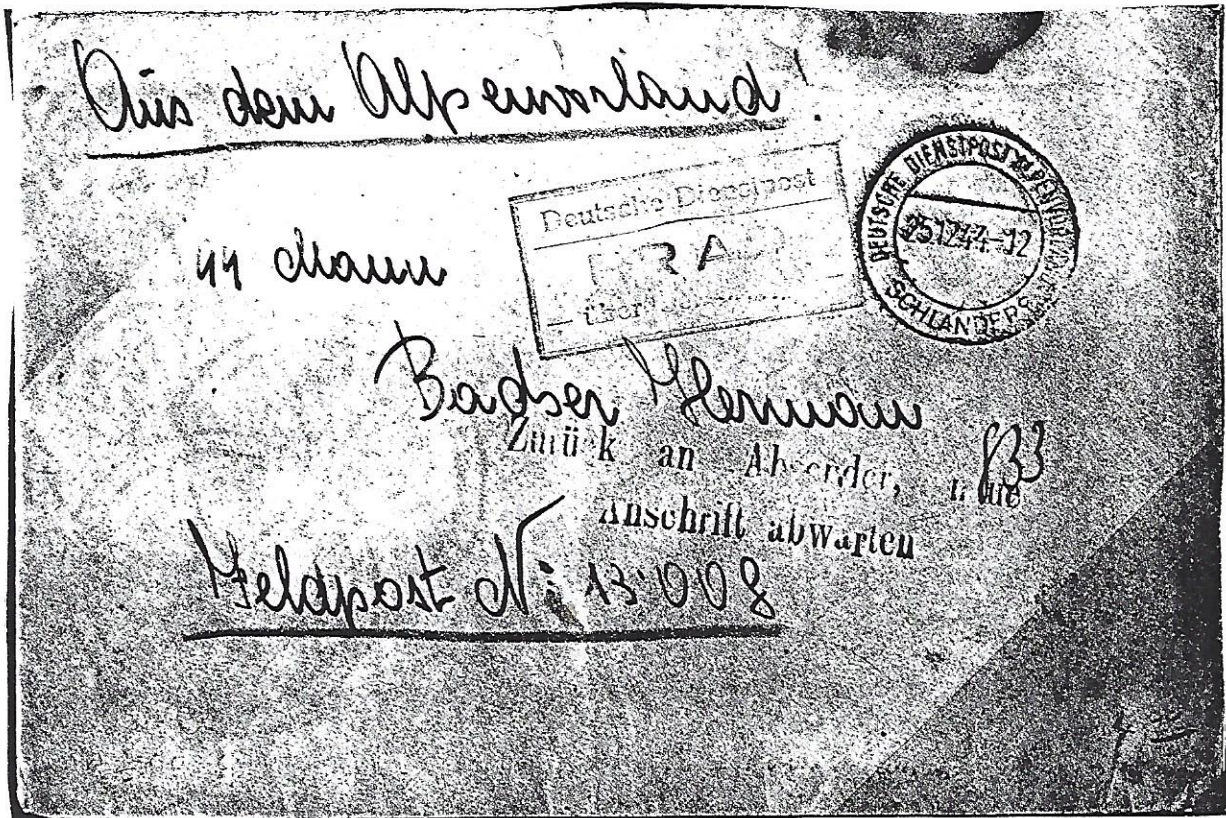 Aus dem Alpenvorland!
Deutsche Dienstpost
über
DEUTSCHE DIENSTPOST ALPENVORLAND
25.12.44-12
SCHLANDERS
44 Mann
Hermann
Zurück an Absender, neue
Anschrift abwarten
Feldpost N: 13:008